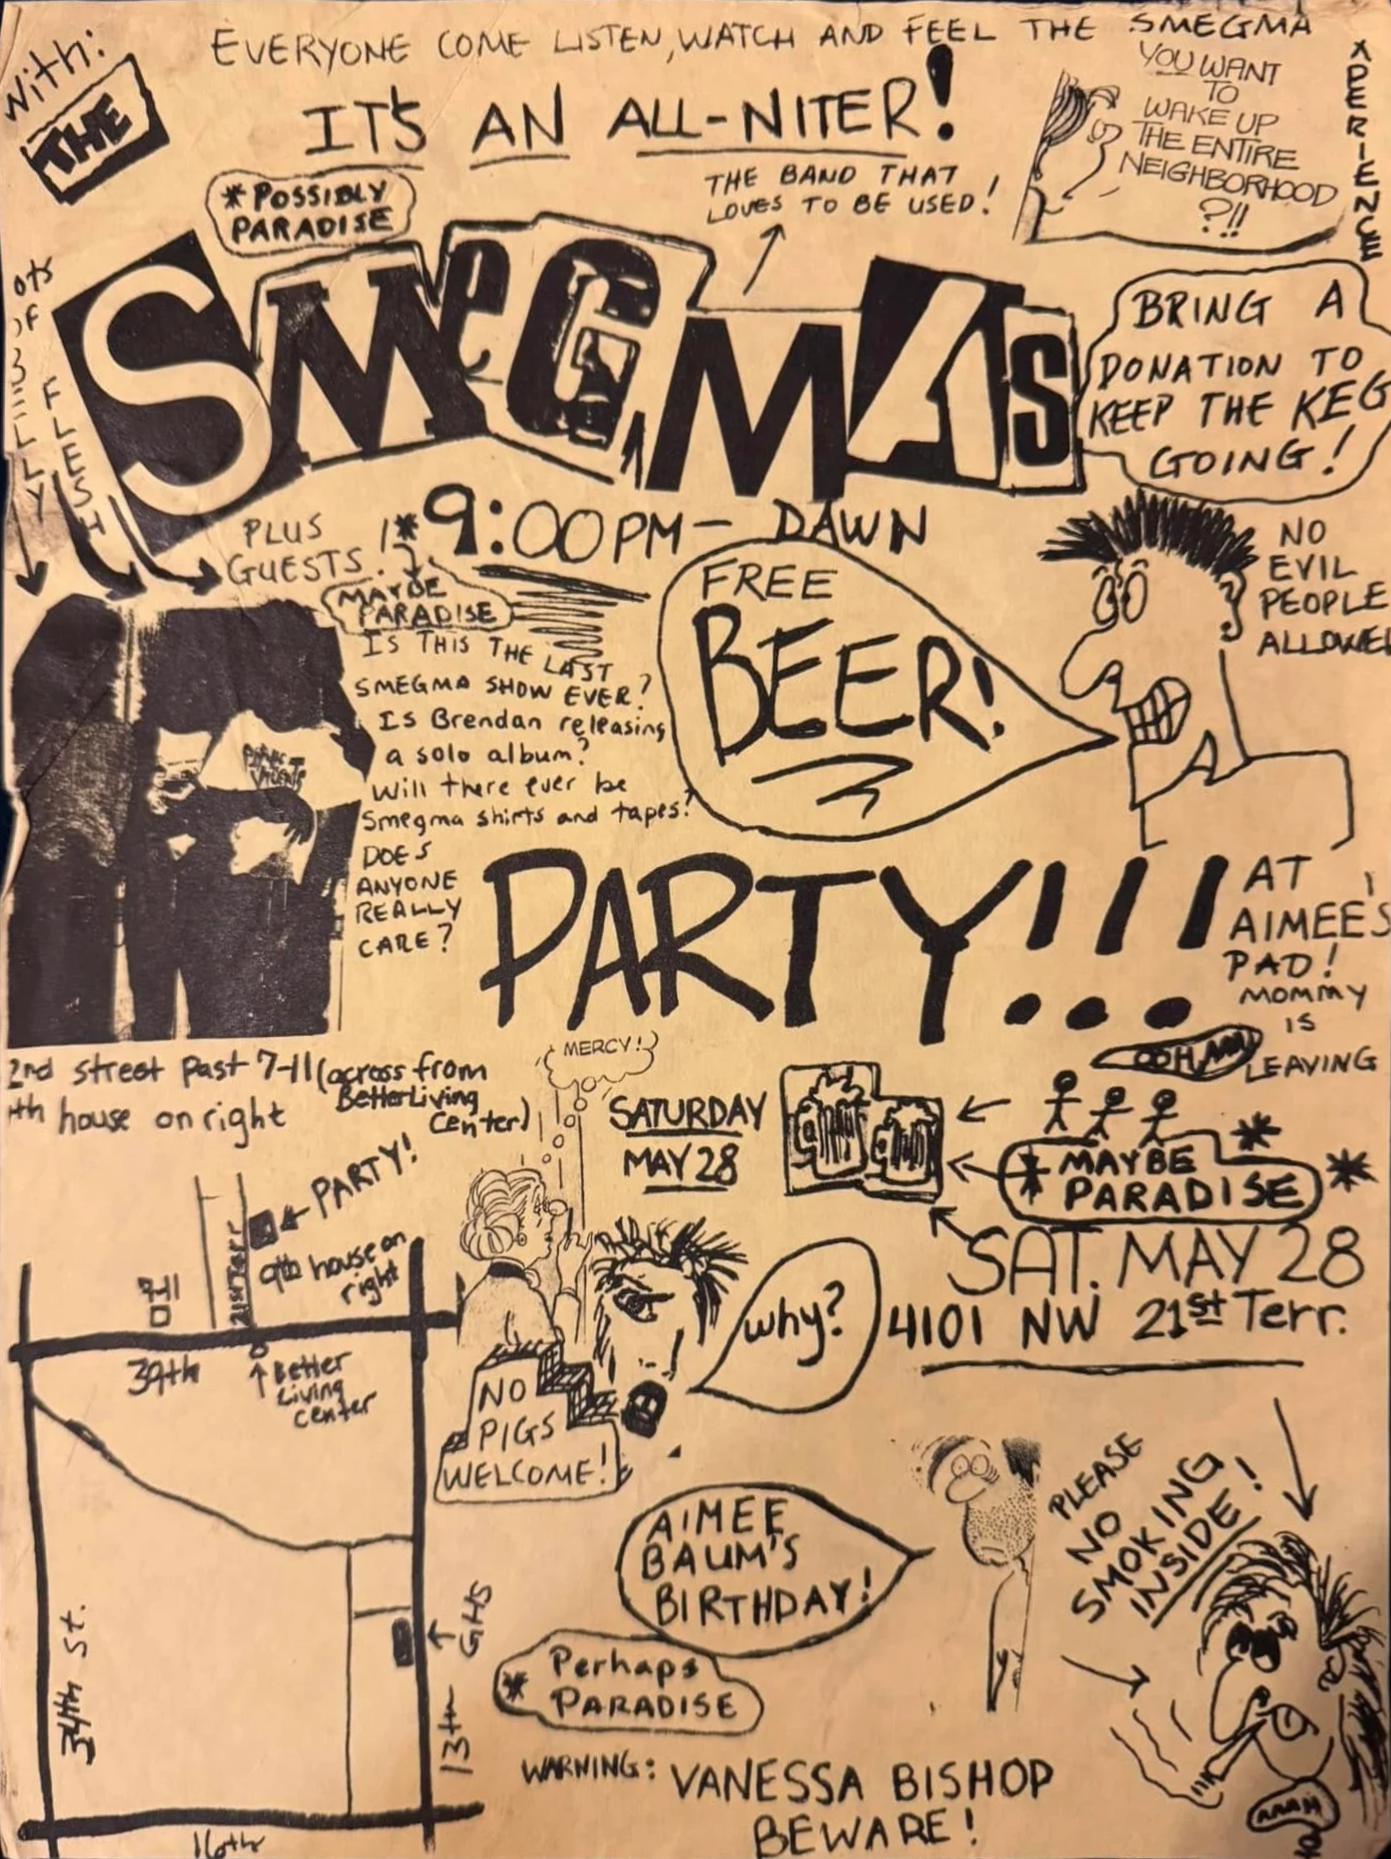 With:
THE
EVERYONE COME LISTEN, WATCH AND FEEL THE SMEGMA
XPERIENCE
IT'S AN ALL-NITER!
YOU WANT
TO
WAKE UP
THE ENTIRE
NEIGHBORHOOD
?!!
* POSSIBLY
PARADISE
THE BAND THAT
LOVES TO BE USED!
SMeGMAs
BRING A
DONATION TO
KEEP THE KEG
GOING!
OF
FLESH
PLUS
GUESTS!
*
9:00PM - DAWN
MAYBE
PARADISE
FREE
BEER!
NO
EVIL
PEOPLE
ALLOWE
IS THIS THE LAST
SMEGMA SHOW EVER?
Is Brendan releasing
a solo album?
Will there ever be
Smegma shirts and tapes?
DOES
ANYONE
REALLY
CARE?
PARTY!!!
AT
AIMEE'S
PAD!
MOMMY
IS
LEAVING
2nd street past 7-11 (across from
Better Living
Center)
th house on right
MERCY!
SATURDAY
MAY 28
* MAYBE
PARADISE
*
*
SAT. MAY 28
4101 NW 21st Terr.
PARTY!
9th house on
right
7-11
21st Terr
39th
Better
Living
Center
why?
NO
PIGS
WELCOME!
AIMEE
BAUM'S
BIRTHDAY!
PLEASE
NO
SMOKING
INSIDE!
* Perhaps
PARADISE
34th St.
GHS
13th
16th
WARNING: VANESSA BISHOP
BEWARE!
AAAH